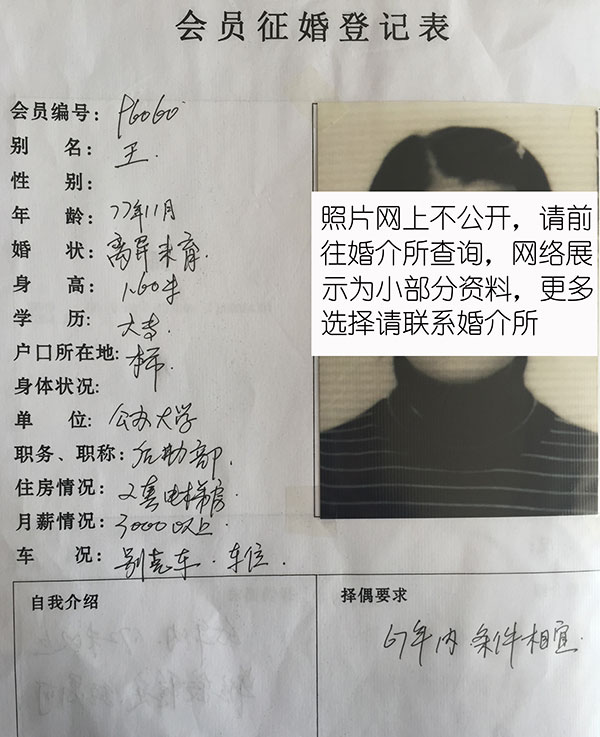 会员征婚登记表
会员编号: P6060
别 名: 王
性 别:
年 龄: 77年11月
婚 状: 离异未育.
身 高: 1.60米
学 历: 大专.
户口所在地: 本市.
身体状况:
单 位: 公办大学
职务、职称: 后勤部.
住房情况: 2套电梯房.
月薪情况: 3000以上
车 况: 别克车. 车位.
照片网上不公开，请前
往婚介所查询，网络展
示为小部分资料，更多
选择请联系婚介所
自我介绍
择偶要求
67年内 条件相宜.